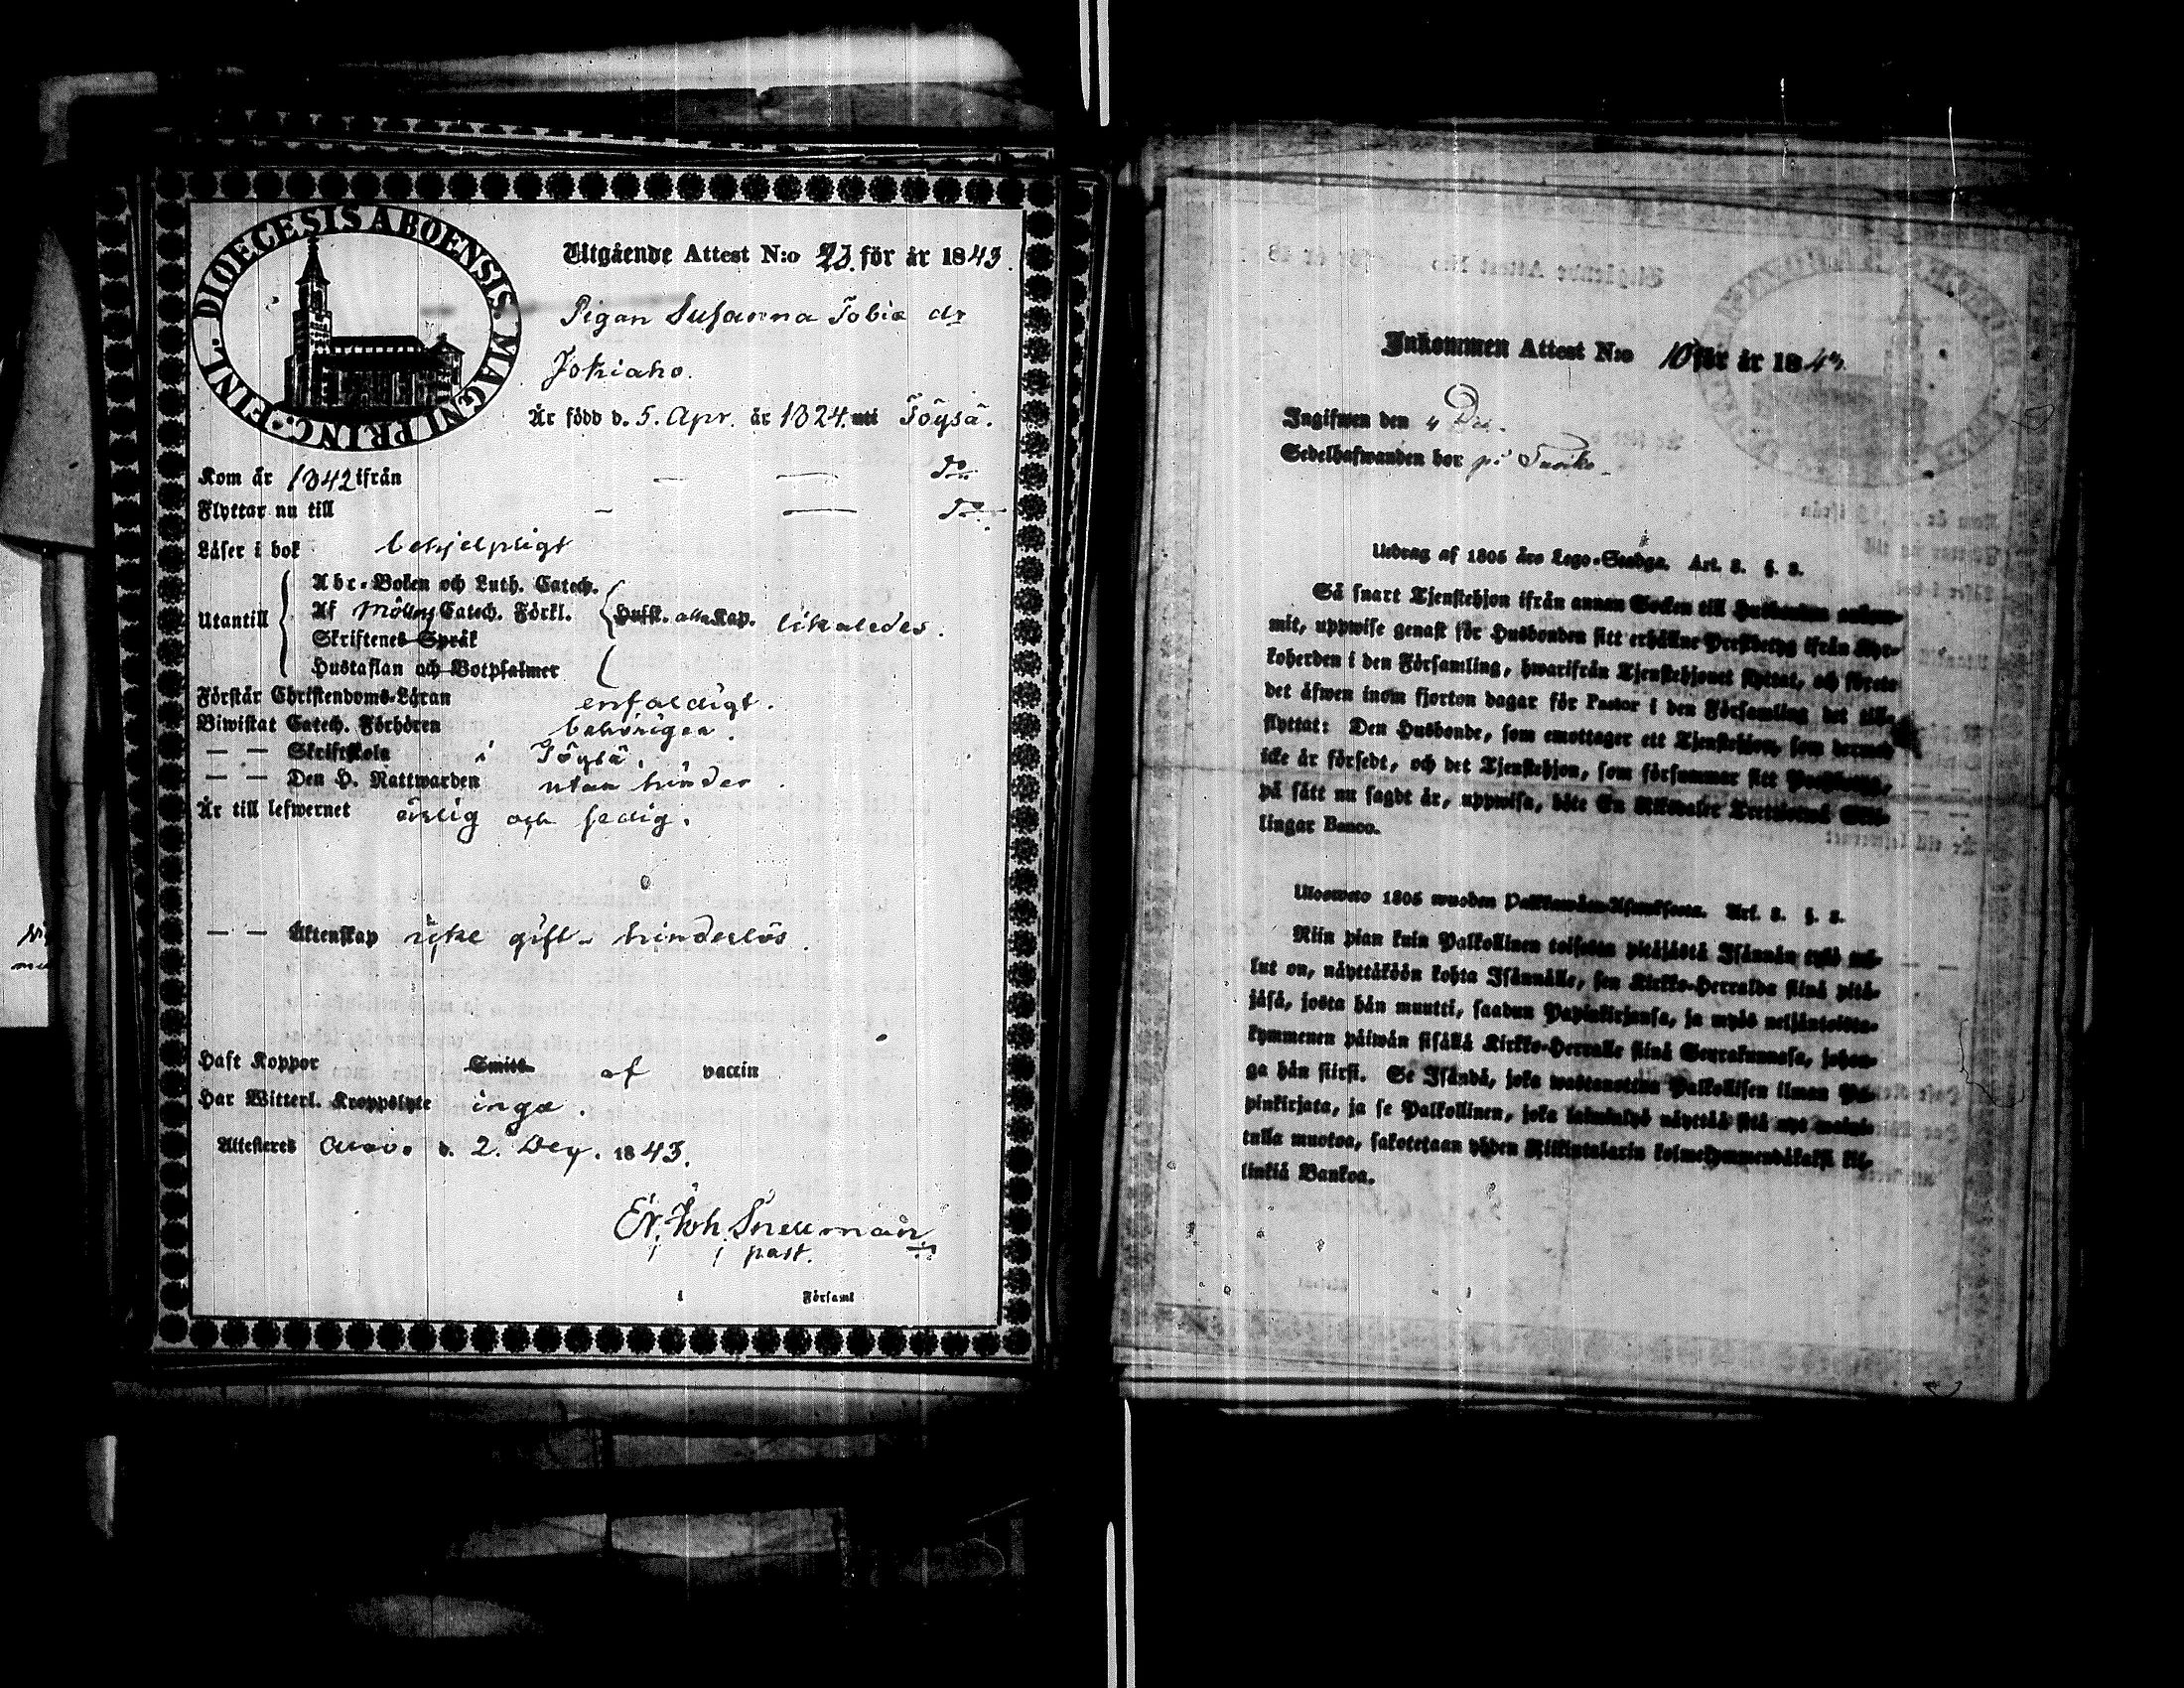 DIOECESIS ABOENSIS. MAGNI PRINC. FINL.
Utgående Attest N:o 23. för år 1843.
Pigan Susanna Tobiæ dr
Jokiaho.
Är född d. 5. Apr. år 1824. uti Töysä.
Kom år 1842 ifrån — — do
Flyttar nu till — — do
Läser i bok behjelpligt
Utantill
Abc-Boken och Luth. Catech.
Af Möllers Catech. Förkl.
Skriftenes Språk
Hustaflan och Botpsalmer
alla Kap. likaledes.
Förstår Christendoms-Läran enfaldigt.
Biwistat Catech. Förhören behörigen.
— — Skriftskola i Töysä.
— — Den H. Nattwarden utan hinder.
Är till lefwernet ärlig och sedig.
— — Äktenskap icke gift - hinderlös.
Haft Koppor af vaccin
Har Witterl. Kroppslyte inga.
Attesteres Alavo. d. 2. Dec. 1843.
Er. Joh. Snellman
past.
i Församl
Inkommen Attest N:o 10 för år 1843.
Ingifwen den 4 Dec.
Sedelhafwanden bor på
Utdrag af 1805 års Lego-Stadga. Art. 3. §. 3.
Så snart Tjenstehjon ifrån annan Socken till Husbonden ankom-
mit, uppwise genast för Husbonden sitt erhållne Prestbetyg ifrån Kyr-
koherden i den Församling, hwarifrån Tjenstehjonet flyttat, och förete
det äfwen inom fjorton dagar för Pastor i den Församling det till-
flyttat: Den Husbonde, som emottager ett Tjenstehjon, som dermed
icke är försedt, och det Tjenstehjon, som försummar sitt Prestbetyg,
på sätt nu sagdt är, uppwisa, böte En Riksdaler Trettiotwå Skil-
lingar Banco.
Ulosweto 1805 wuoden Palkkawäen-Asetuksesta. Art. 3. §. 3.
Niin pian kuin Palkollinen toisesta pitäjästä Isännän tykö tul-
lut on, näyttäköön kohta Isännälle, sen Kirkko-Herralda siinä pitä-
jäsä, josta hän muutti, saadun Papinkirjansa, ja myös neljäntoista-
kymmenen päiwän sisällä Kirkko-Herralle siinä Seurakunnasa, johon-
ga hän siirsi. Se Isändä, joka wastanottaa Palkollisen ilman Pa-
pinkirjata, ja se Palkollinen, joka laiminlyö näyttää sitä nyt mainit-
tulla muotoa, sakotetaan yhden Riikintalarin kolmekymmendäkaksi kil-
linkiä Bankoa.